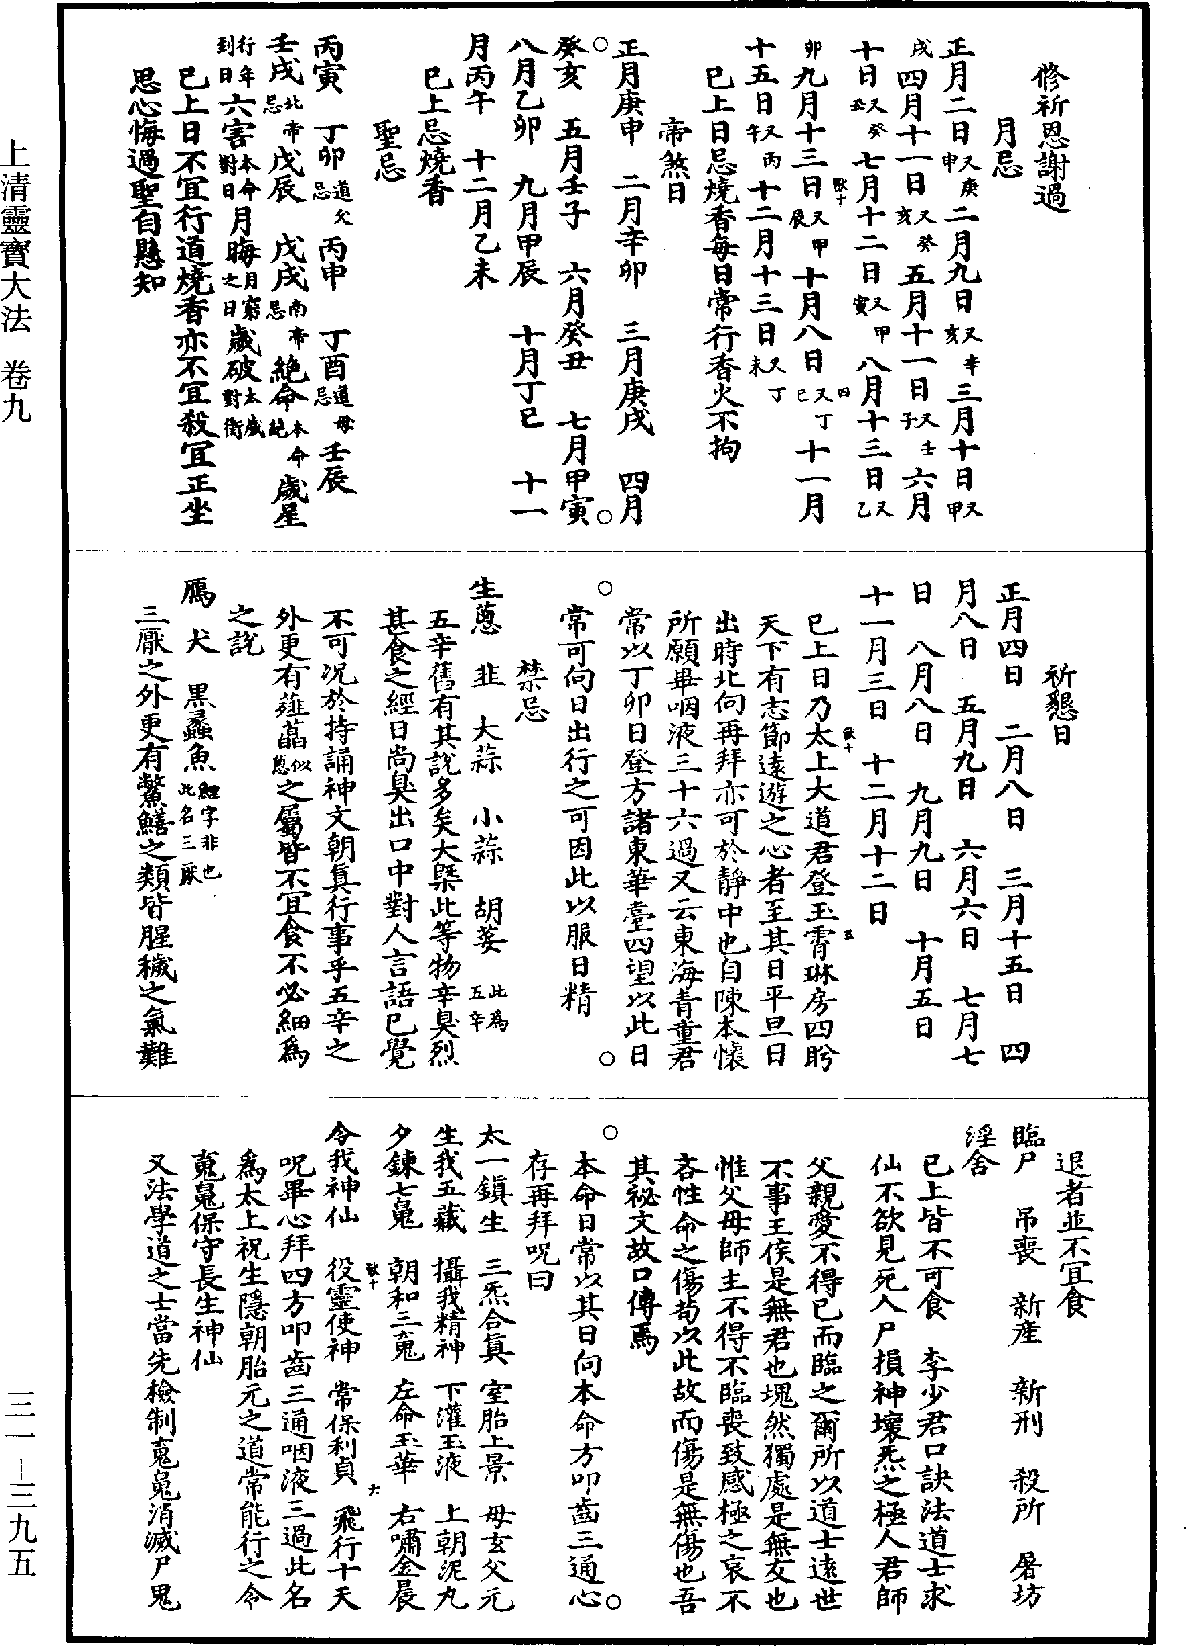 上清靈寶大法　卷九
三一－三九五
修祈恩謝過
月忌
正月二日又庚申二月九日又辛亥三月十日又甲
戌四月十一日又癸亥五月十一日又壬子六月
十日又癸丑七月十二日又甲寅八月十三日又乙
卯九月十三日又甲辰十月八日又丁巳十一月
十五日又丙午十二月十三日又丁未
已上日忌燒香每日常行香火不拘
帝煞日
正月庚申　二月辛卯　三月庚戌　四月
癸亥　五月壬子　六月癸丑　七月甲寅
八月乙卯　九月甲辰　十月丁巳　十一
月丙午　十二月乙未
已上忌燒香
聖忌
丙寅　丁卯道父忌丙申　丁酉道母忌壬辰
壬戌北帝忌戊辰　戊戌南帝忌絕命本命絕歲星
行年到日六害本命對日月晦月窮之日歲破太歲對衝
已上日不宜行道燒香亦不宜殺宜正坐
思心悔過聖自懸知
祈懇日
正月四日　二月八日　三月十五日　四
月八日　五月九日　六月六日　七月七
日　八月八日　九月九日　十月五日
十一月三日　十二月十二日
已上日乃太上大道君登玉霄琳房四盻
天下有志節遠遊之心者至其日平旦日
出時北向再拜亦可於靜中也自陳本懷
所願畢咽液三十六過又云東海青童君
常以丁卯日登方諸東華臺四望以此日
常可向日出行之可因此以服日精
禁忌
生蔥　韭　大蒜　小蒜　胡荽此為五辛
五辛舊有其說多矣大槩此等物辛臭烈
甚食之經日尚臭出口中對人言語已覺
不可況於持誦神文朝真行事乎五辛之
外更有薤藠似蔥之屬皆不宜食不必細為
之說
鴈　犬　黑蠡魚鯉字非也此名三厭
三厭之外更有鱉鱔之類皆腥穢之氣難
退者並不宜食
臨尸　吊喪　新産　新刑　殺所　屠坊
淫舍
已上皆不可食　李少君口訣法道士求
仙不欲見死人尸損神壞炁之極人君師
父親愛不得已而臨之爾所以道士遠世
不事王侯是無君也塊然獨處是無友也
惟父母師主不得不臨喪致感極之哀不
吝性命之傷茍以此故而傷是無傷也吾
其祕文故口傳焉
本命日常以其日向本命方叩齒三通心
存再拜呪曰
太一鎮生　三炁合真　室胎上景　母玄父元
生我五藏　攝我精神　下灌玉液　上朝泥丸
夕鍊七鬽　朝和三䰟　左命玉華　右嘯金晨
令我神仙　役靈使神　常保利貞　飛行十天
呪畢心拜四方叩齒三通咽液三過此名
為太上祝生隱朝胎元之道常能行之令
䰟鬽保守長生神仙
又法學道之士當先檢制䰟鬽消滅尸鬼